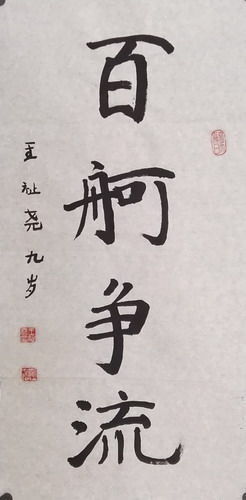 百舸争流
王祉尧九岁